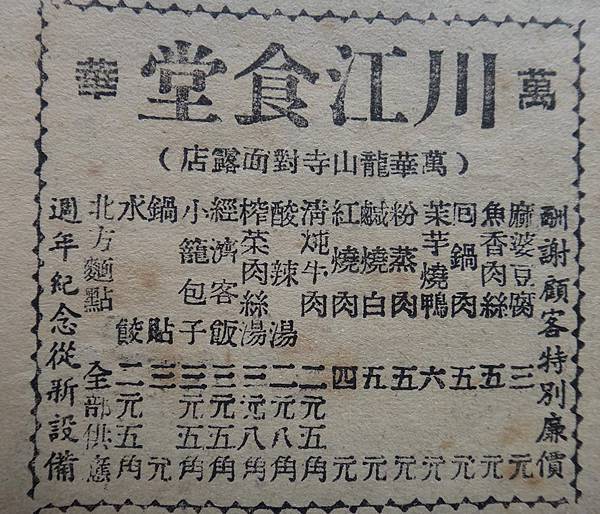 萬川江食堂華
(萬華龍山寺對面露店)
酬謝顧客特別廉價
麻婆豆腐 三元
魚香肉絲 五元
回鍋肉 五元
茉芋燒鴨 六元
粉蒸肉 五元
鹹燒白 五元
紅燒肉 四元
清炖牛肉 二元五角
酸辣湯 二元八角
榨菜肉絲湯 三元八角
經濟客飯 三元五角
小籠包子 三元五角
鍋貼 三元
水餃 二元五角
北方麵點 全部供應
週年紀念從新設備